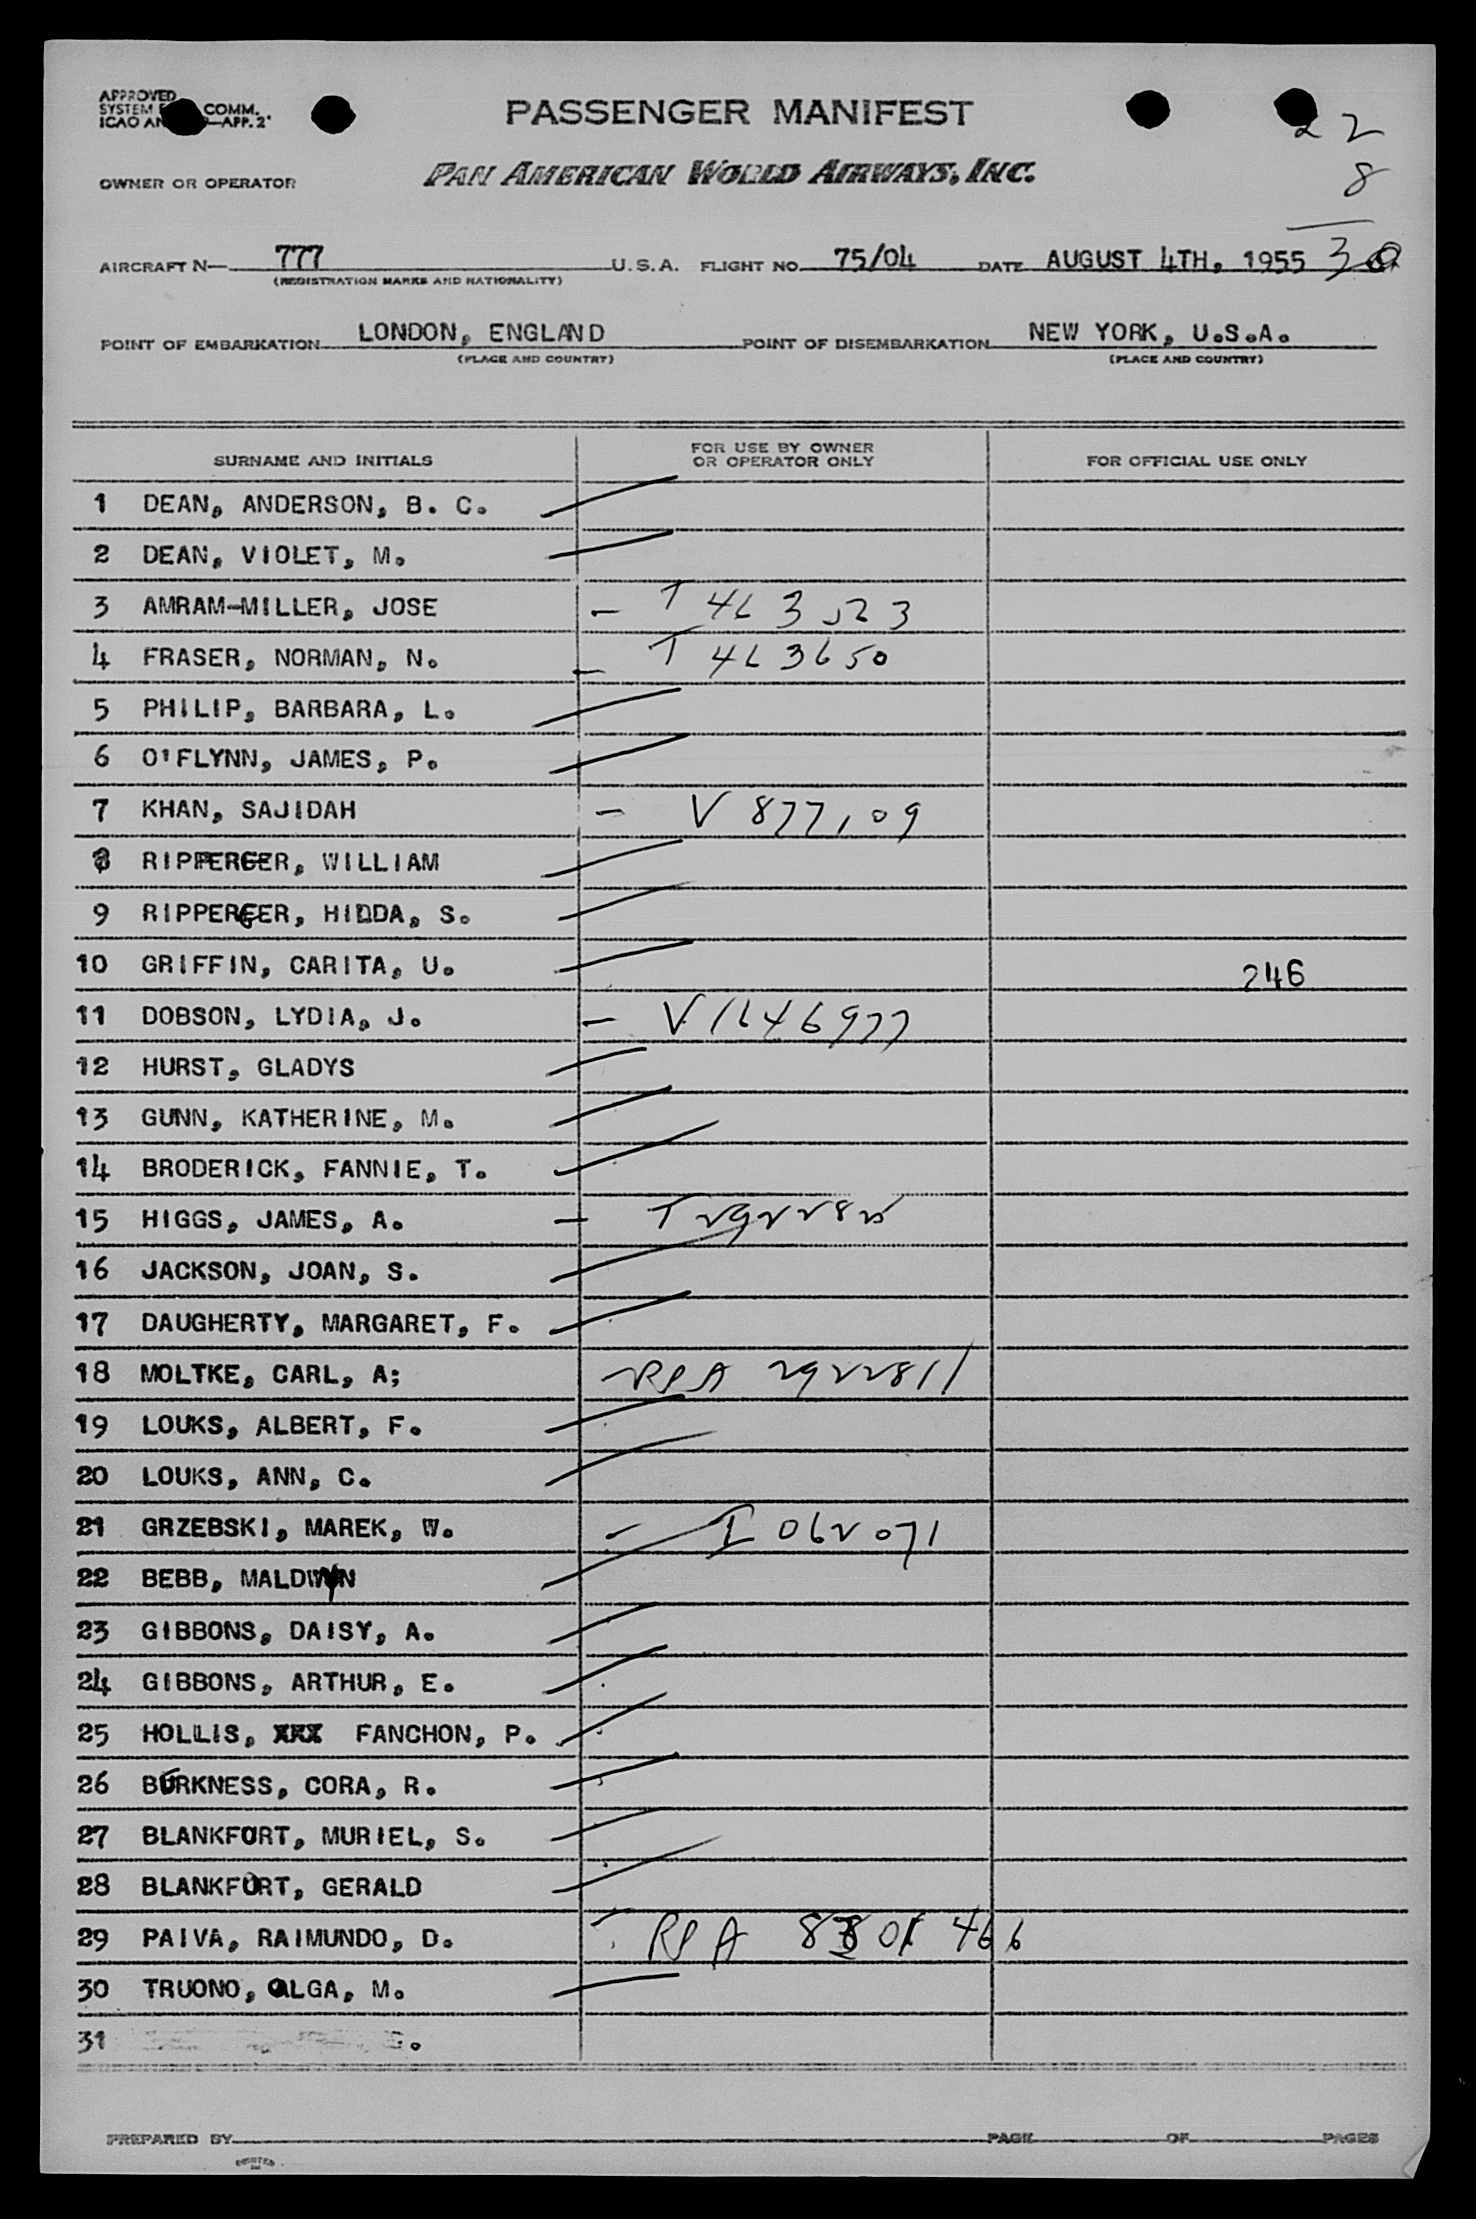 APPROVED
SYSTEM COMM.
ICAO AN —APP. 2
PASSENGER MANIFEST
22
8
30
OWNER OR OPERATOR PAN AMERICAN WORLD AIRWAYS, INC.
AIRCRAFT N— 777 U.S.A. FLIGHT NO. 75/04 DATE AUGUST 4TH, 1955
(REGISTRATION MARKS AND NATIONALITY)
POINT OF EMBARKATION LONDON, ENGLAND POINT OF DISEMBARKATION NEW YORK, U.S.A.
(PLACE AND COUNTRY) (PLACE AND COUNTRY)
SURNAME AND INITIALS FOR USE BY OWNER OR OPERATOR ONLY FOR OFFICIAL USE ONLY
1 DEAN, ANDERSON, B. C.
2 DEAN, VIOLET, M.
3 AMRAM-MILLER, JOSE — T 463523
4 FRASER, NORMAN, N. — T 463650
5 PHILIP, BARBARA, L.
6 O'FLYNN, JAMES, P.
7 KHAN, SAJIDAH — V 877109
8 RIPPERGER, WILLIAM
9 RIPPERGER, HILDA, S.
10 GRIFFIN, CARITA, U. 246
11 DOBSON, LYDIA, J. — V 1646977
12 HURST, GLADYS
13 GUNN, KATHERINE, M.
14 BRODERICK, FANNIE, T.
15 HIGGS, JAMES, A. — T
16 JACKSON, JOAN, S.
17 DAUGHERTY, MARGARET, F.
18 MOLTKE, CARL, A; — RPA 2922811
19 LOUKS, ALBERT, F.
20 LOUKS, ANN, C.
21 GRZEBSKI, MAREK, W. — I 062071
22 BEBB, MALDWYN
23 GIBBONS, DAISY, A.
24 GIBBONS, ARTHUR, E.
25 HOLLIS, XXX FANCHON, P.
26 BURKNESS, CORA, R.
27 BLANKFORT, MURIEL, S.
28 BLANKFORT, GERALD
29 PAIVA, RAIMUNDO, D. — RPA 466
30 TRUONO, OLGA, M.
31
PREPARED BY PAGE OF PAGES